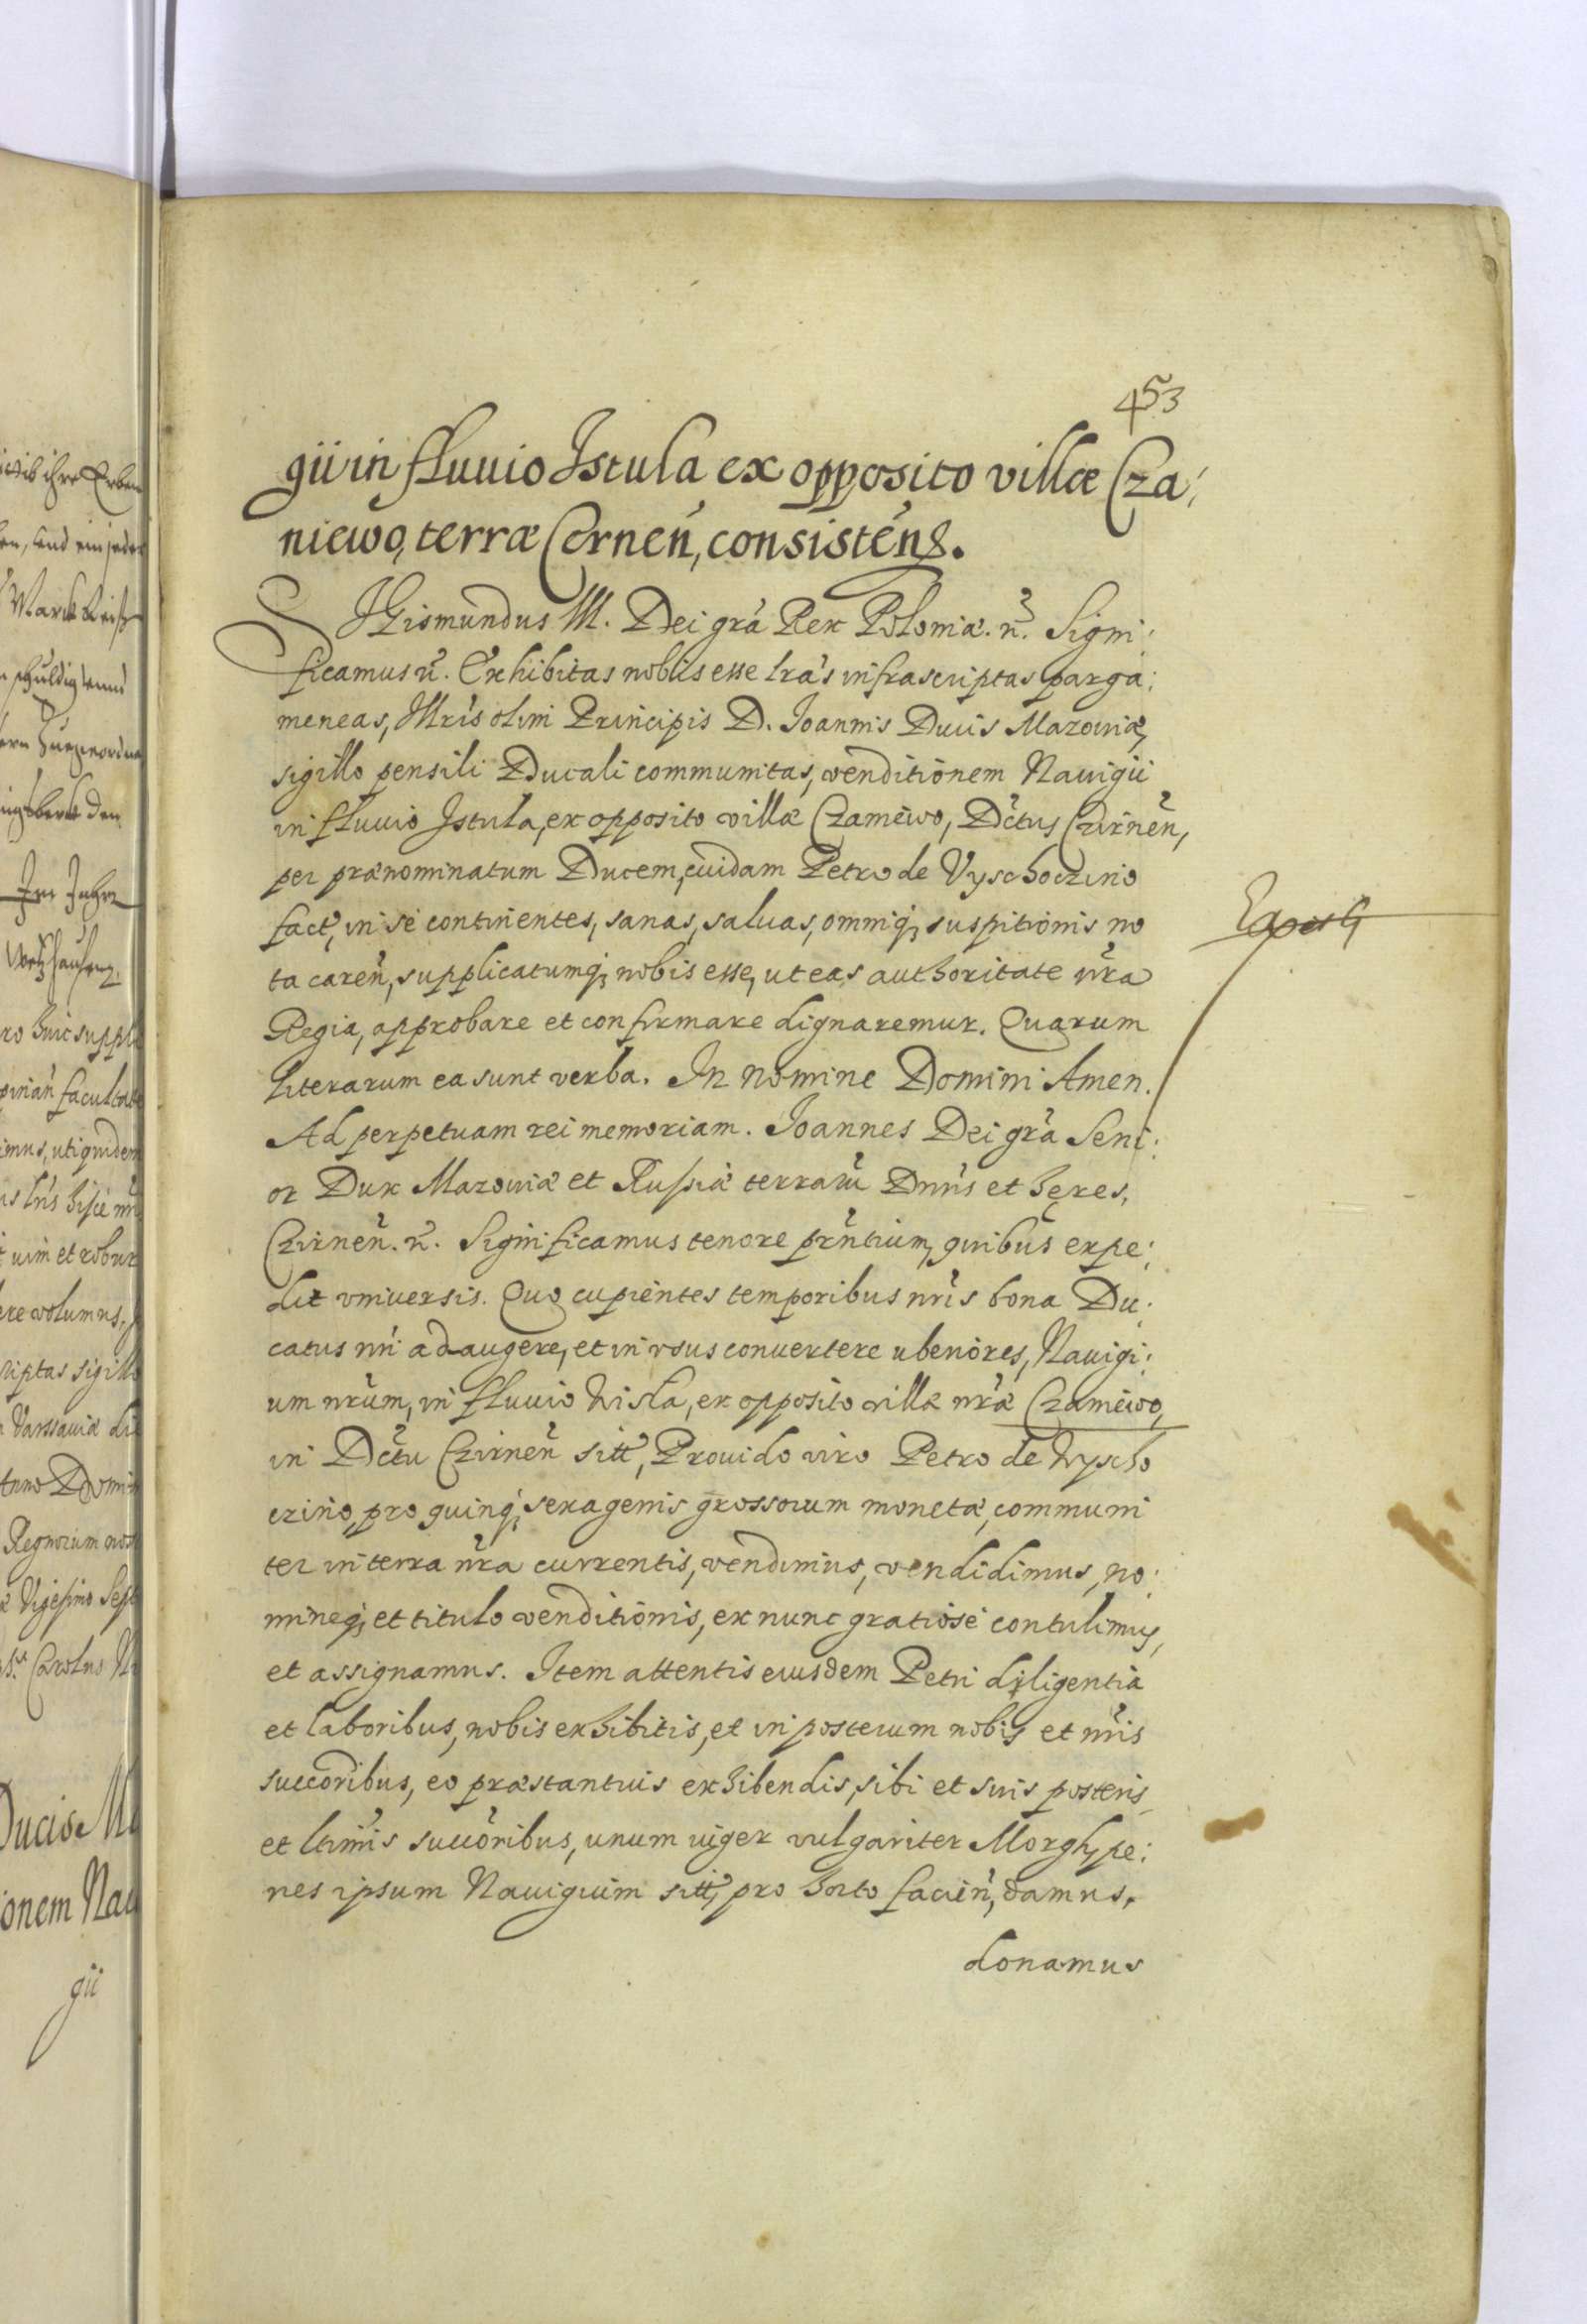 453
gii in fluuio Istula ex opposito villæ Cza:
niewo, terræ Cernen, consisten̄s.
SIGismundus III. Dei grá Rex Poloniæ. ꝛc. Signi:
ficamus ꝛc. Exhibitas nobis esse lrás infrascriptas parga:
meneas, Illrís olim Principis D. Joannis Ducis Mazoviæ,
sigillo pensili Ducali communitas, venditionem Nauigii
in fluuio Istula, ex opposito villæ Czaniewo, Dctus Czirneñ,
per prænominatum Ducem, cuidam Petro de Vyschoczino
fact, in se continentes, sanas, saluas, omniq; suspitionis no
ta careñ, supplicatumq; nobis esse, ut eas authoritate nr̃a
Regia, approbare et confirmare dignaremur. Quarum
literarum ea sunt verba. In Nomine Domini Amen.
Ad perpetuam rei memoriam. Joannes Dei gr̃a Seni:
or Dux Mazoviæ et Russiæ terrarũ Dnñs et heres,
Czirneñ. ꝛc. Significamus tenore prñtium, quibus expe:
dit vniuersis. Quo cupientes temporibus nr̃is bona Du:
catus nri adaugere, et in vsus conuertere uberiores, Nauigi:
um nrúm, in fluuio Wisla, ex opposito villæ nr̃æ Czaniewo,
in Dctu Czirneñ sitt, Prouido viro Petro de Wyscho
czino, pro quinq; sexagenis grossorum monetæ, communi
ter in terra nr̃a currentis, vendimus, vendidimus, no:
mineq; et titulo venditionis, ex nunc gratiose contulimus,
et assignamus. Item attentis eiusdem Petri diligentia
et laboribus, nobis exhibitis, et in posterum nobis et nr̃is
succoribus, eo præstantius exhibendis, sibi et suis posteris
et ltimis succoribus, unum iuger vulgariter Morgh, pe:
nes ipsum Nauigium sitt, pro horto facien, damus,
donamus